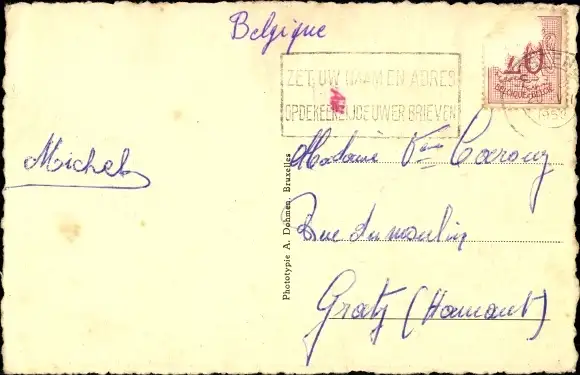 Belgique
ZET UW NAAM EN ADRES
OP DE KEERZIJDE UWER BRIEVEN
BELGIQUE-BELGIE
Michel
Madame Vve
Rue du moulin
(Hainaut)
Phototypie A. Dohmen, Bruxelles